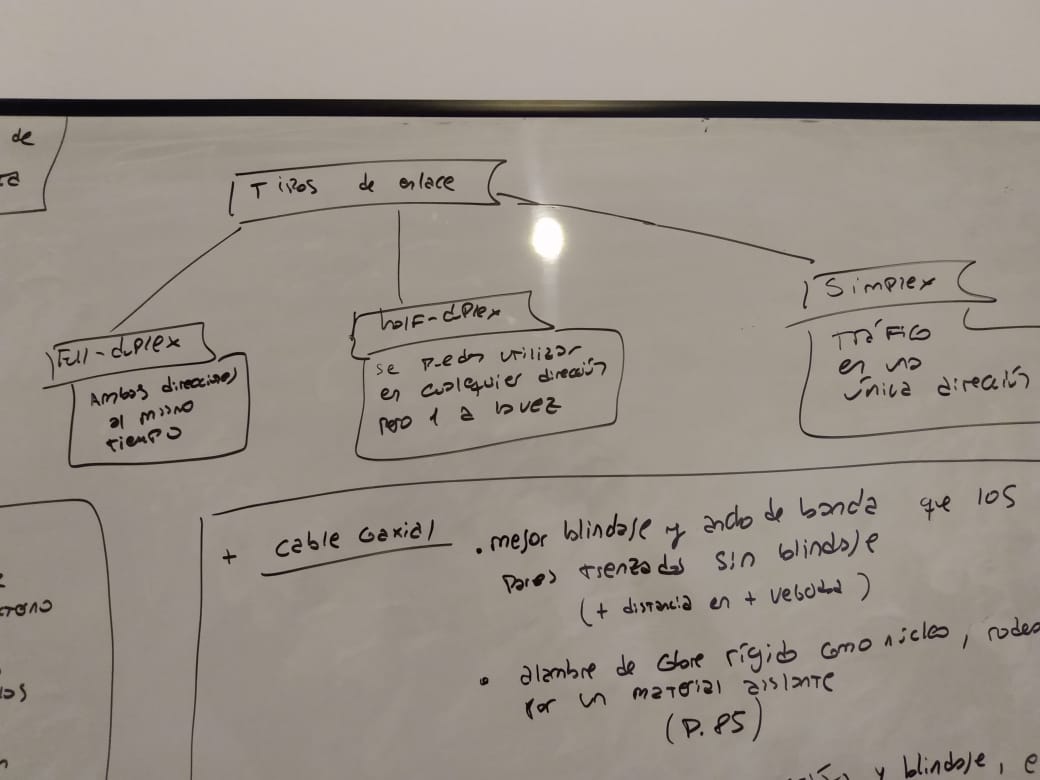 de
Tipos de enlace
Full-duplex
Ambas direcciones
al mismo
tiempo
half-duplex
se puedes utilizar
en cualquier dirección
pero 1 a la vez
Simplex
TRÁFICO
en una
única dirección
+ cable coaxial
• mejor blindaje y ancho de banda que los
pares trenzados sin blindaje
(+ distancia en + velocidad)
• alambre de cobre rígido como núcleo, rodea
por un material aislante
(P. 85)
y blindaje, e